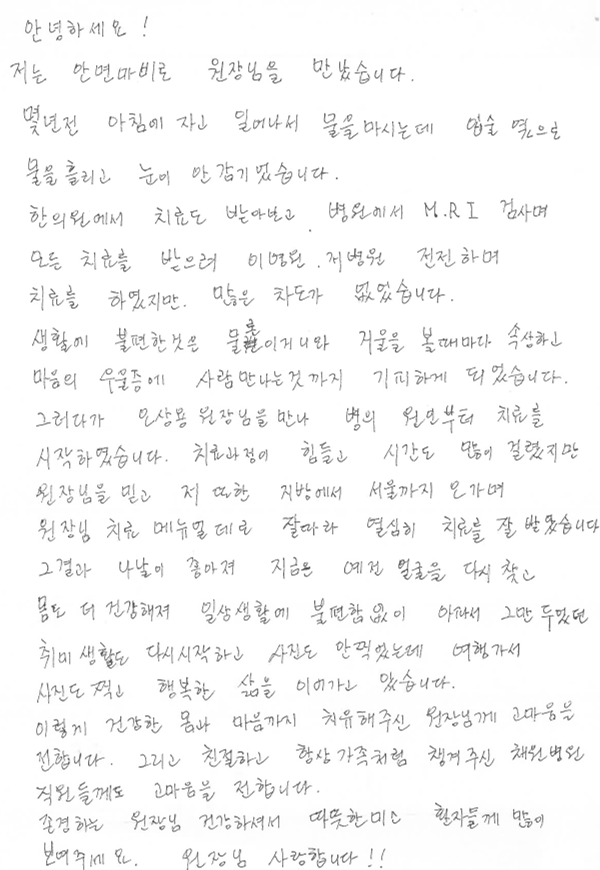 안녕하세요!
저는 안면마비로 원장님을 만났습니다.
몇년전 아침에 자고 일어나서 물을마시는데 입술 옆으로
물을흘리고 눈이 안감기었습니다.
한의원에서 치료도 받아보고. 병원에서 M.R.I 검사며
모든 치료를 받으려 이병원. 저병원 전전하며
치료를 하였지만. 많은 차도가 없었습니다.
생활에 불편한것은 물론이거니와 거울을 볼때마다 속상하고
마음의 우울증에 사람만나는것까지 기피하게 되었습니다.
그러다가 오상용 원장님을만나 병의 원인부터 치료를
시작하였습니다. 치료과정이 힘들고 시간도 많이 걸렸지만
원장님을 믿고 저 또한 지방에서 서울까지 오가며
원장님 치료 메뉴얼 데로 잘따라 열심히 치료를 잘 받았습니다
그결과 나날이 좋아져 지금은 예전 얼굴을 다시 찾고
몸도 더 건강해져 일상생활에 불편함없이 아파서 그만 두었던
취미 생활도 다시시작하고 사진도 안찍었는데 여행가서
사진도 찍고 행복한 삶을 이어가고 있습니다.
이렇게 건강한 몸과 마음까지 치유해주신 원장님께 고마움을
전합니다. 그리고 친절하고 항상 가족처럼 챙겨주신 채원병원
직원들께도 고마움을 전합니다.
존경하는 원장님 건강하셔서 따뜻한미소 환자들께 많이
보여주세요. 원장님 사랑합니다!!